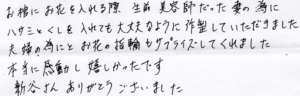 お棺にお花を入れる際 生前 美容師だった 妻の為に
ハサミとくしを入れても大丈夫なように 作製していただきました
夫婦の為にとお花の指輪もサプライズしてくれました
本当に感動し嬉しかったです
新谷さん ありがとうございました